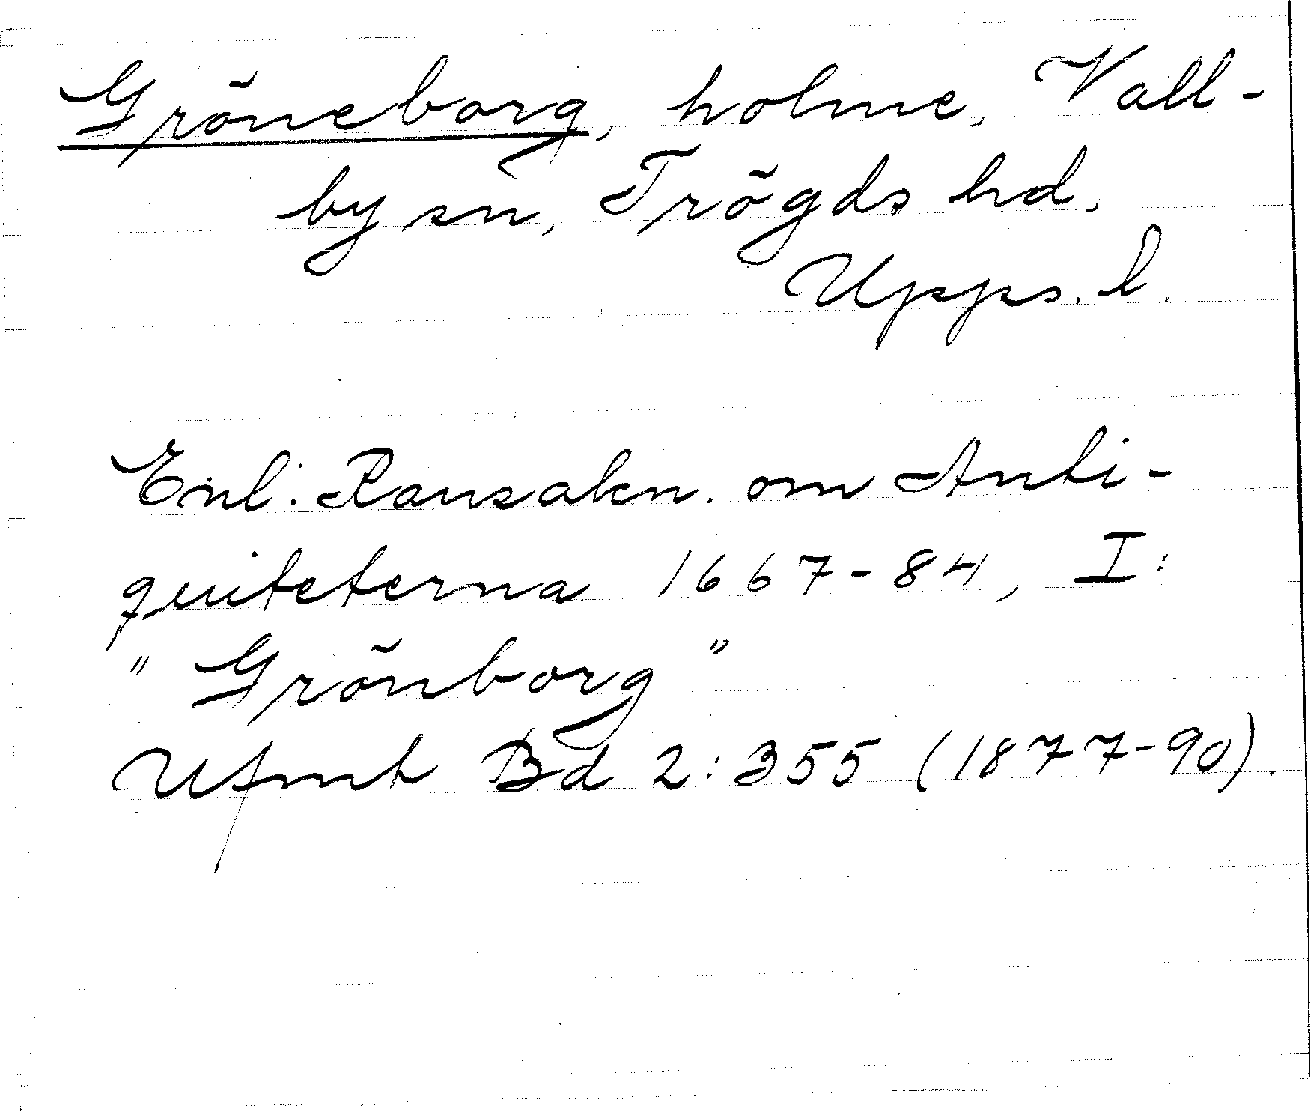 Gröneborg, holme, Vall-
by sn, Trögds hd,
Upps. l.
Enl. Ransakn. om Anti-
quiteterna 1667-84, I:
"Grönborg"
Ufmt Bd 2:355 (1877-90).